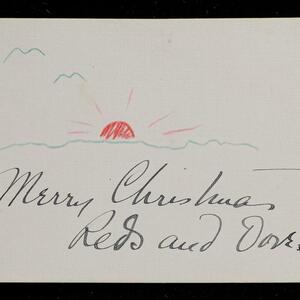 Merry Christmas
Reds and Dove.